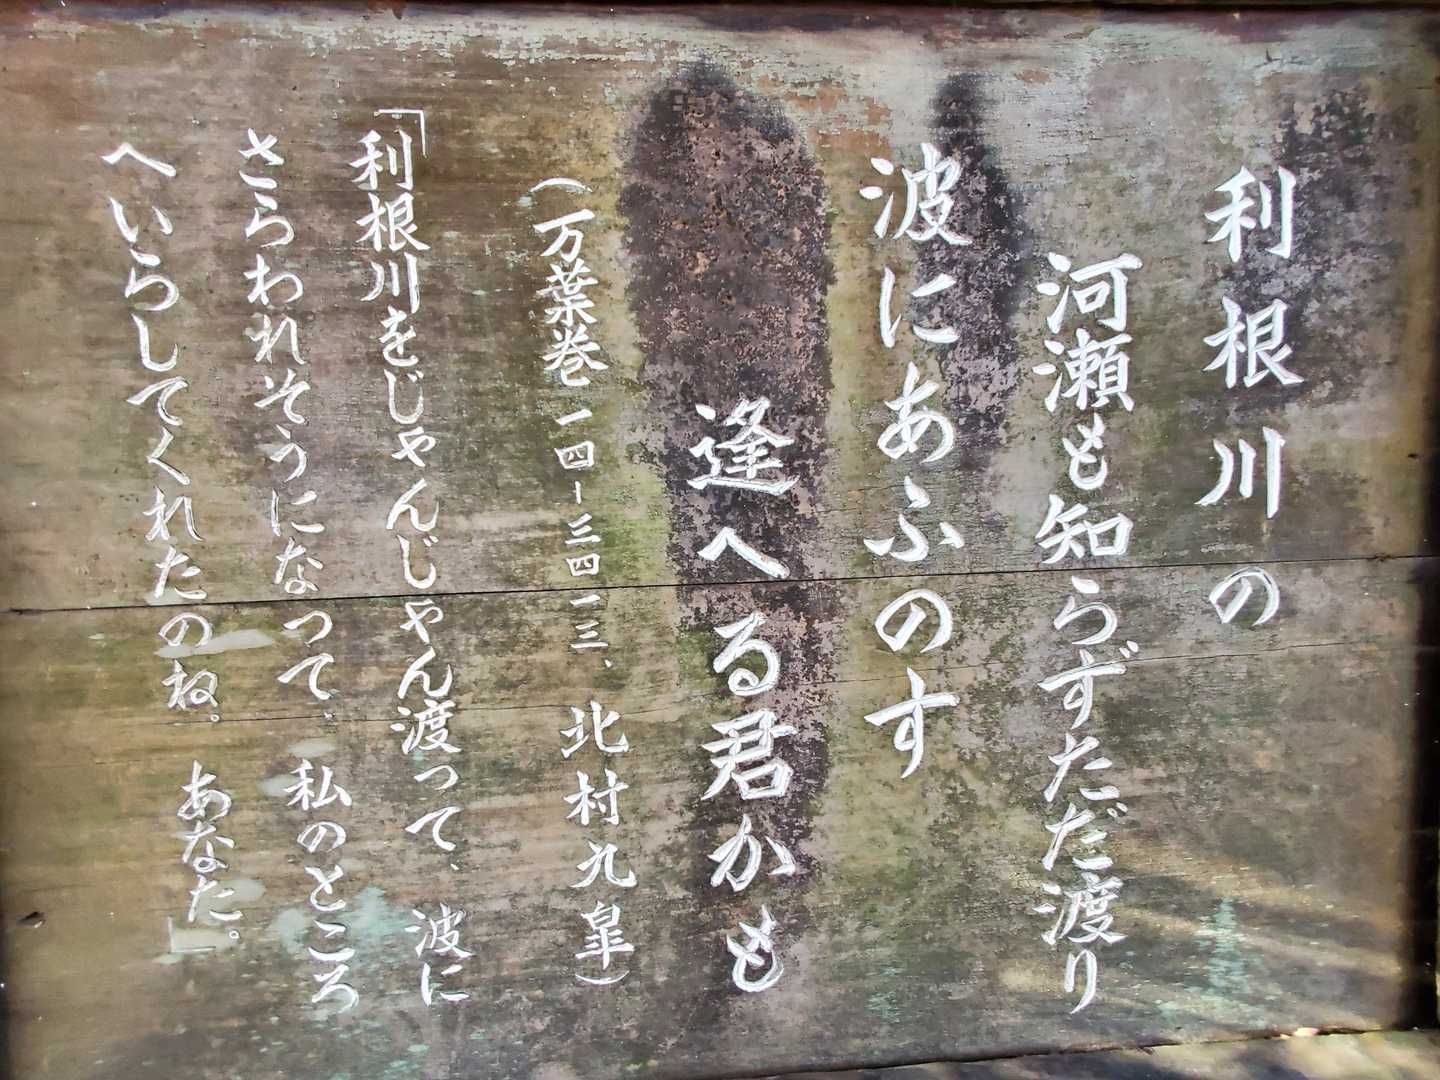 利根川の
河瀬も知らずただ渡り
波にあふのす
逢へる君かも
(万葉巻一四-三四一三、北村九皐)
「利根川をじゃんじゃん渡って、波に
さらわれそうになって、私のところ
へいらしてくれたのね。あなた。」